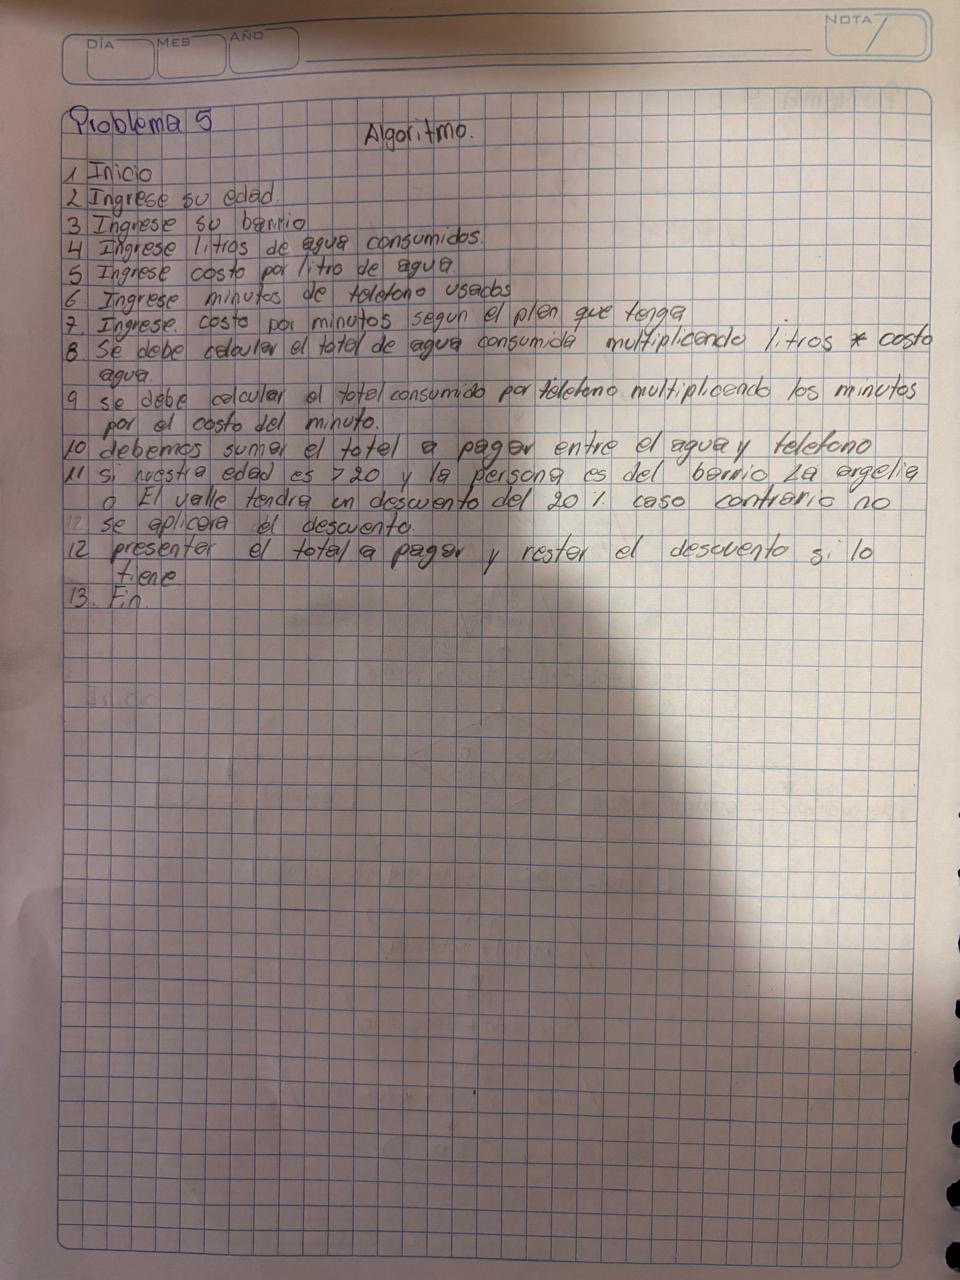 DÍA MES AÑO NOTA
Problema 5
Algoritmo.
1 Inicio
2 Ingrese su edad.
3 Ingrese su barrio
4 Ingrese litros de agua consumidos.
5 Ingrese costo por litro de agua.
6. Ingrese minutos de telefono usados
7. Ingrese costo por minutos segun el plan que tenga
8 Se debe calcular el total de agua consumida multiplicando litros * costo
agua.
9 se debe calcular el total consumido por telefono multiplicando los minutos
por el costo del minuto.
10 debemos sumar el total a pagar entre el agua y telefono
11 si nuestra edad es >20 y la persona es del barrio La argelia
o El valle tendra un descuento del 20% caso contrario no
12 se aplicara el descuento.
12 presentar el total a pagar y restar el descuento si lo
tiene
13. Fin.